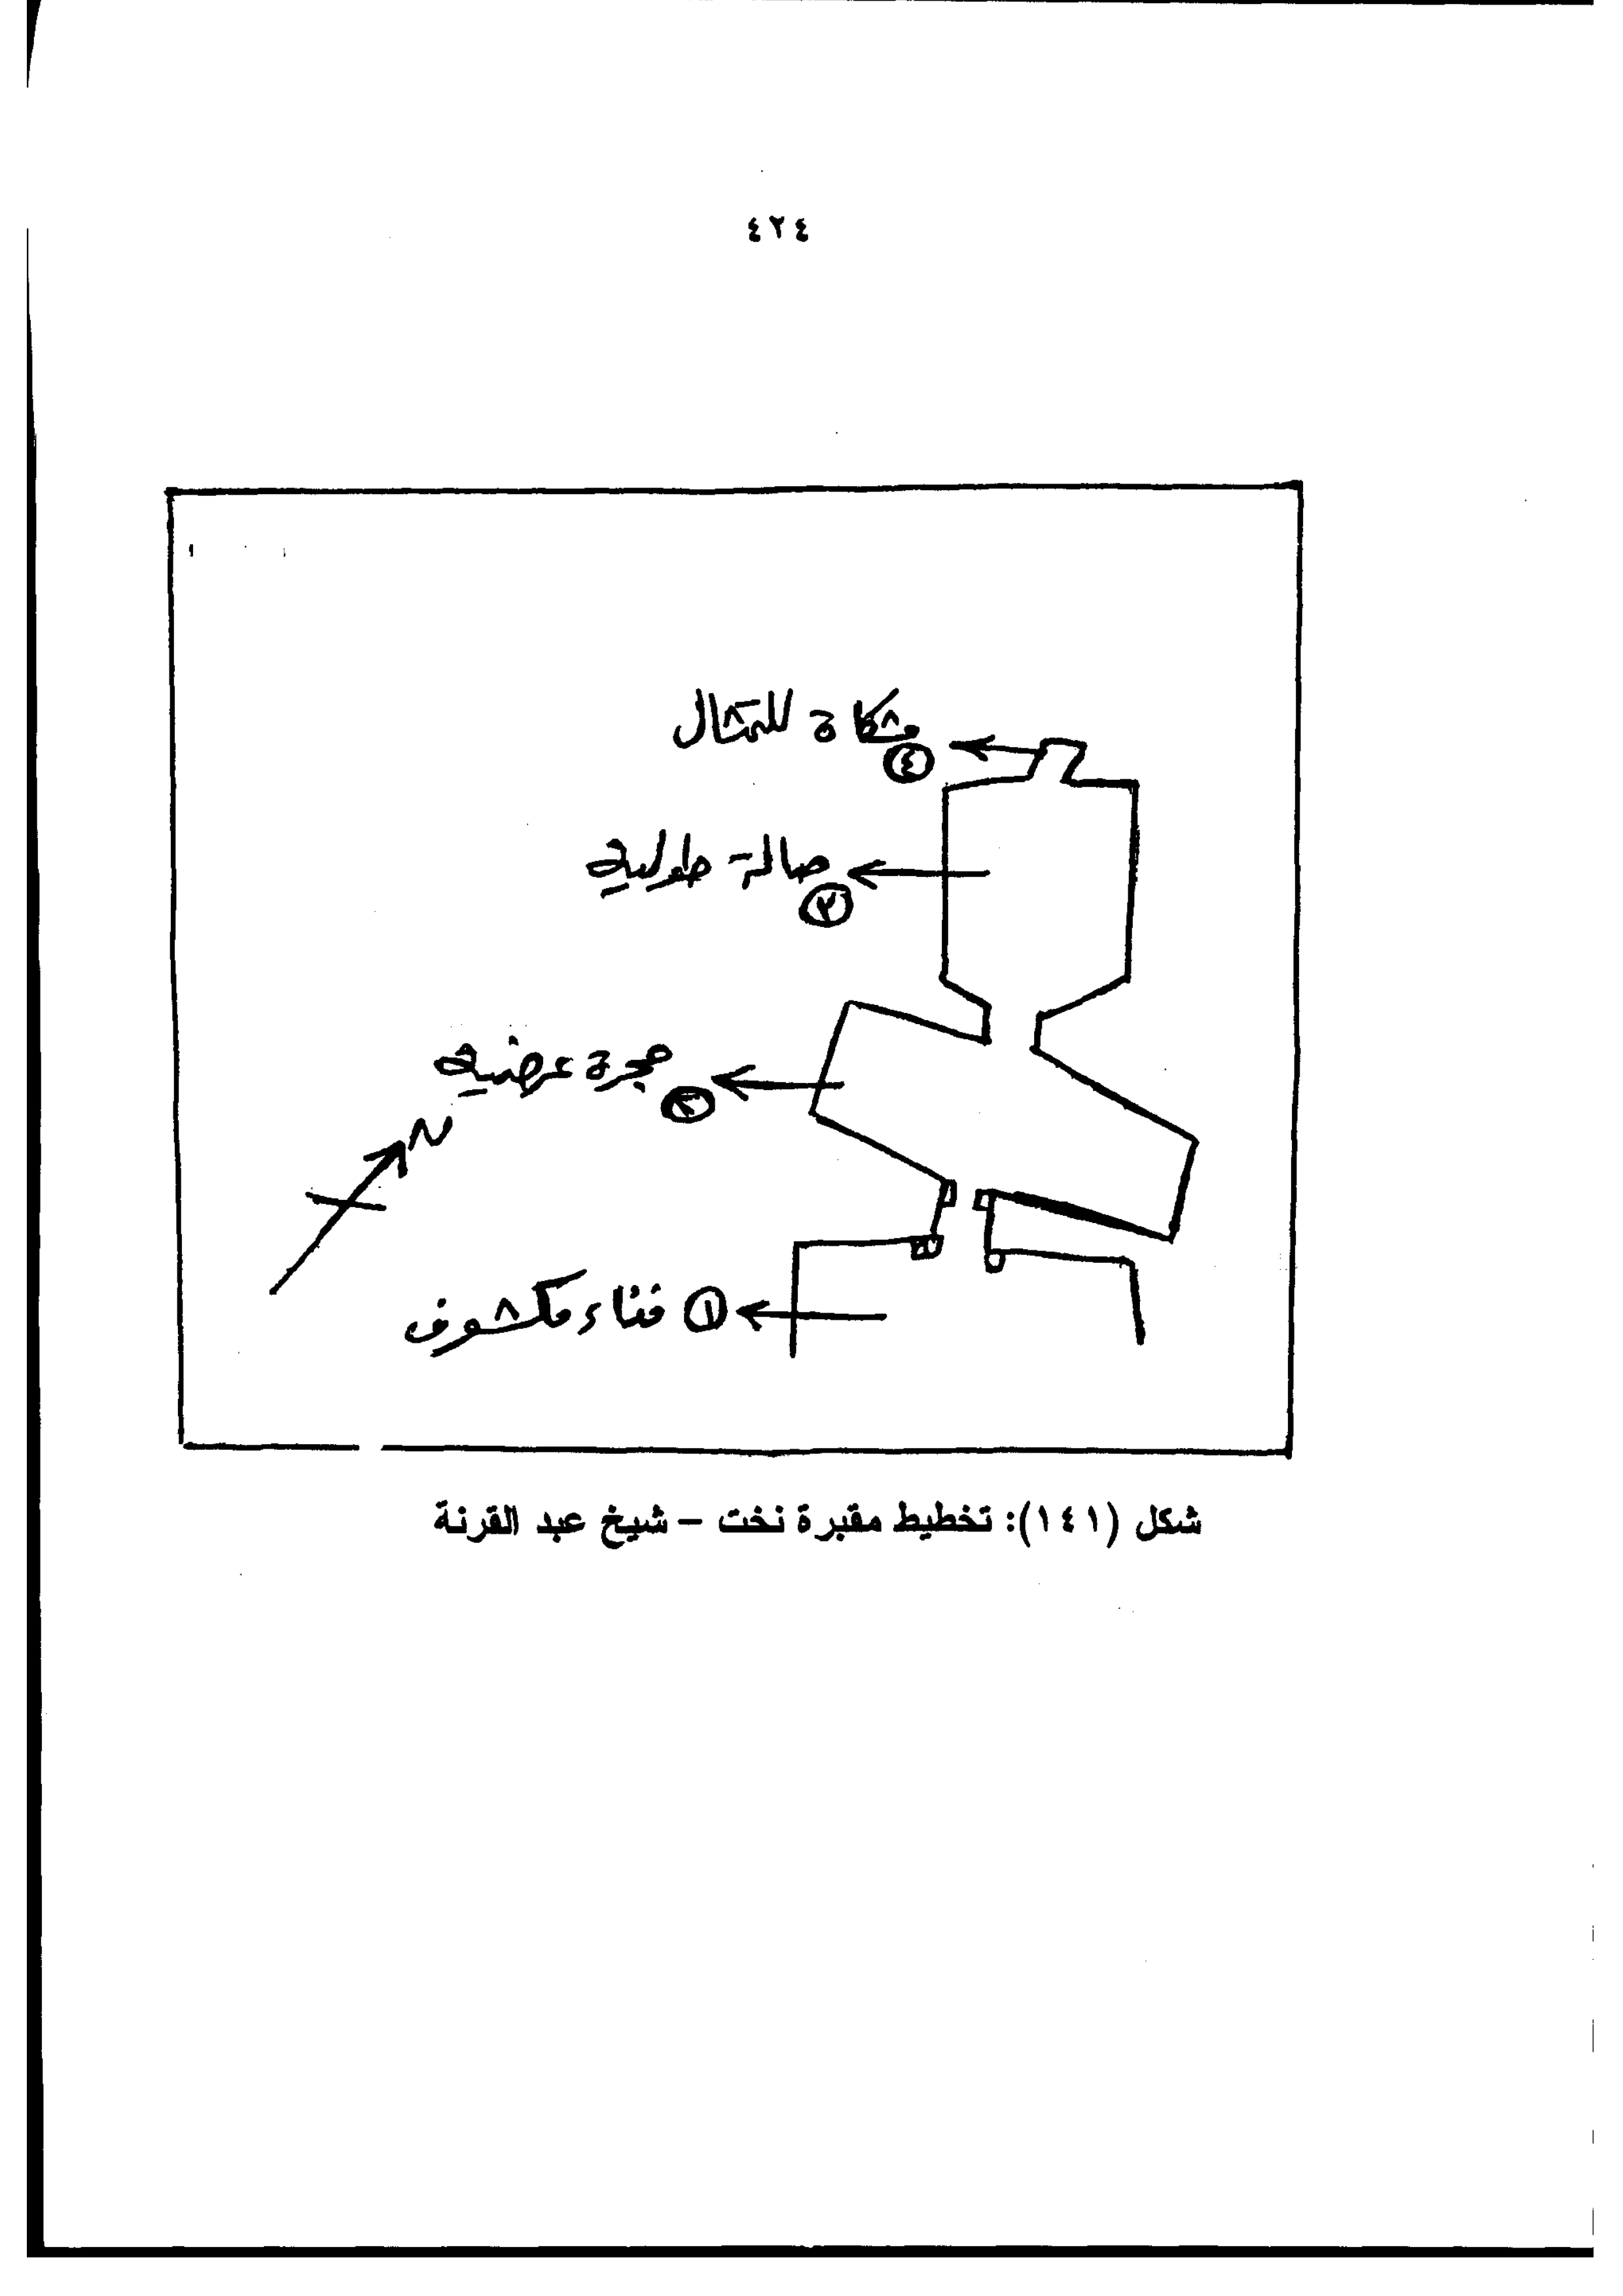 ٤٢٤
مشكاة للتمثال
④
صالة طولية
③
حجرة عرضية
②
N
① فناء مكشوف
شكل (١٤١): تخطيط مقبرة نخت – شيخ عبد القرنة